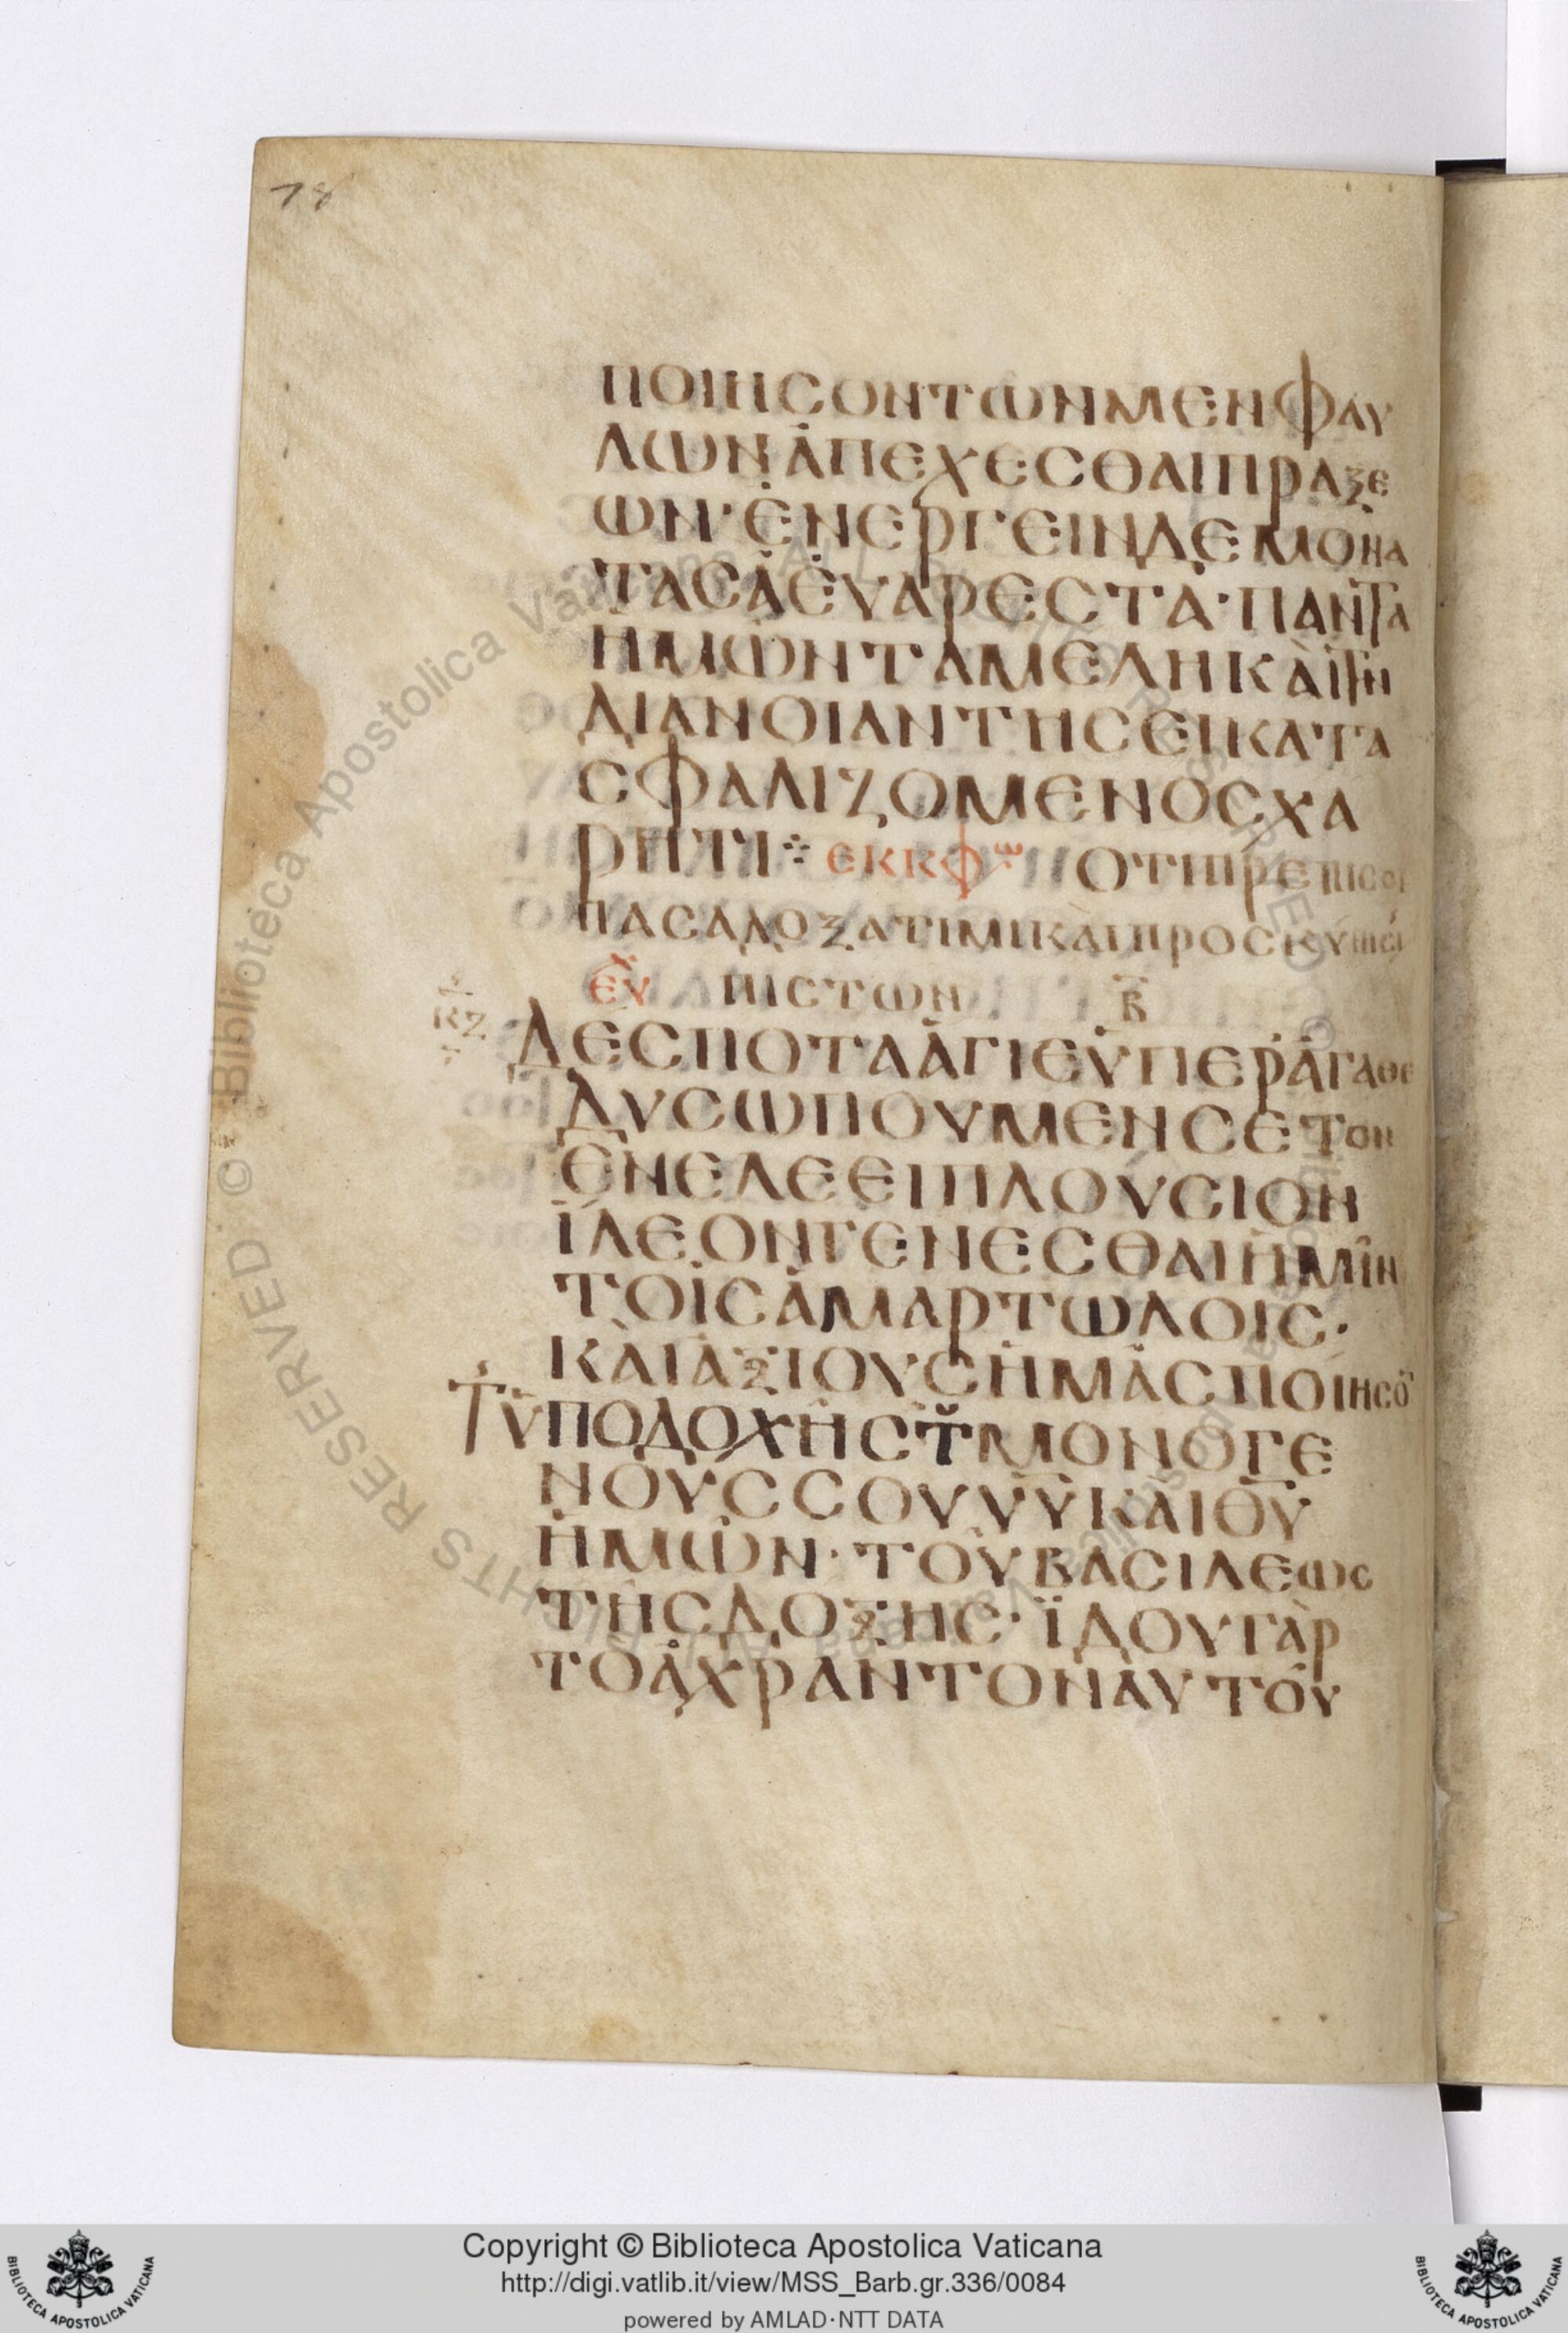 78
ΠΟΙΗCΟΝΤΩΝΜΕΝΦΑΥ
ΛΩΝἈΠΕΧΕCΘΑΙΠΡΑΞΕ
ΩΝ·ἘΝΕΡΓΕΙΝΔΕΜΟΝΑ
ΤΑCἈἘΥΑΡΕCΤΑ·ΠΑΝΤΑ
ἩΜΩΝΤΑΜΕΛΗΚᾺΙΤΗ
ΔΙΑΝΟΙΑΝΤΗCΕΙΚΑΤΑ
CΦΑΛΙΖΟΜΕΝΟCΧΑ
ΡΗΤΙ ⁘ ΕΚΚΦω ΟΤΙΠΡΕΠΙCΟΙ
ΠΑCΑΔΟΞΑΤΙΜΙΚᾺΙΠΡΟCΚΥΝΙCΙ
ΕΥΧ ΠΙCΤΩΝ Β
ΚΖ
ΔΕCΠΟΤΑἈΓΙΕὙΠΕΡἈΓΑΘΕ
ΔΥCΩΠΟΥΜΕΝCΕΤΟΝ
ἘΝΕΛΕΕΙΠΛΟΥCΙΟΝ
ΪΛΕΟΝΓΕΝΕCΘΑΙἩΜΙΝ
ΤΟΙCἈΜΑΡΤΩΛΟΙC·
ΚᾺΙἈΞΙΟΥCἩΜΑCΠΟΙΗCΟ̄
ΤΥΠΟΔΟΧΗCΤΥΜΟΝΟΓΕ
ΝΟΥCCΟΥΥ̅Υ̅ΚΑΙΘ̅Υ̅
ἩΜΩΝ·ΤΟΥΒΑCΙΛΕΩC
ΤΗCΔΟΞΗC·ΪΔΟΥΓᾺΡ
ΤΟἈΧΡΑΝΤΟΝΑΥΤΟΥ
Biblioteca Apostolica Vaticana ALL RIGHTS RESERVED ©
Copyright © Biblioteca Apostolica Vaticana
http://digi.vatlib.it/view/MSS_Barb.gr.336/0084
powered by AMLAD·NTT DATA
BIBLIOTECA APOSTOLICA VATICANA
BIBLIOTECA APOSTOLICA VATICANA